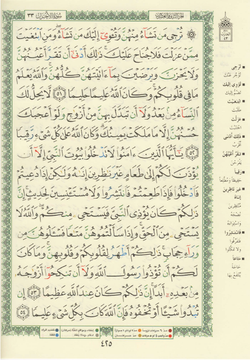 سورة الأحزاب ٣٣
الجزء الثاني والعشرون
تُرْجِي مَن تَشَآءُ مِنْهُنَّ وَتُـْٔوِيٓ إِلَيْكَ مَن تَشَآءُ ۖ وَمَنِ ٱبْتَغَيْتَ
مِمَّنْ عَزَلْتَ فَلَا جُنَاحَ عَلَيْكَ ۚ ذَٰلِكَ أَدْنَىٰٓ أَن تَقَرَّ أَعْيُنُهُنَّ
وَلَا يَحْزَنَّ وَيَرْضَيْنَ بِمَآ ءَاتَيْتَهُنَّ كُلُّهُنَّ ۚ وَٱللَّهُ يَعْلَمُ
مَا فِي قُلُوبِكُمْ ۚ وَكَانَ ٱللَّهُ عَلِيمًا حَلِيمًا ٥١ لَّا يَحِلُّ لَكَ
ٱلنِّسَآءُ مِنۢ بَعْدُ وَلَآ أَن تَبَدَّلَ بِهِنَّ مِنْ أَزْوَٰجٍ وَلَوْ أَعْجَبَكَ
حُسْنُهُنَّ إِلَّا مَا مَلَكَتْ يَمِينُكَ ۗ وَكَانَ ٱللَّهُ عَلَىٰ كُلِّ شَيْءٍ رَّقِيبًا
٥٢ يَٰٓأَيُّهَا ٱلَّذِينَ ءَامَنُوا۟ لَا تَدْخُلُوا۟ بُيُوتَ ٱلنَّبِيِّ إِلَّآ أَن
يُؤْذَنَ لَكُمْ إِلَىٰ طَعَامٍ غَيْرَ نَٰظِرِينَ إِنَىٰهُ وَلَٰكِنْ إِذَا دُعِيتُمْ
فَٱدْخُلُوا۟ فَإِذَا طَعِمْتُمْ فَٱنتَشِرُوا۟ وَلَا مُسْتَـْٔنِسِينَ لِحَدِيثٍ ۚ إِنَّ
ذَٰلِكُمْ كَانَ يُؤْذِي ٱلنَّبِيَّ فَيَسْتَحْيِۦ مِنكُمْ ۖ وَٱللَّهُ لَا
يَسْتَحْيِۦ مِنَ ٱلْحَقِّ ۚ وَإِذَا سَأَلْتُمُوهُنَّ مَتَٰعًا فَسْـَٔلُوهُنَّ مِن
وَرَآءِ حِجَابٍ ۚ ذَٰلِكُمْ أَطْهَرُ لِقُلُوبِكُمْ وَقُلُوبِهِنَّ ۚ وَمَا كَانَ
لَكُمْ أَن تُؤْذُوا۟ رَسُولَ ٱللَّهِ وَلَآ أَن تَنكِحُوٓا۟ أَزْوَٰجَهُۥ
مِنۢ بَعْدِهِۦٓ أَبَدًا ۚ إِنَّ ذَٰلِكُمْ كَانَ عِندَ ٱللَّهِ عَظِيمًا ٥٣ إِن
تُبْدُوا۟ شَيْـًٔا أَوْ تُخْفُوهُ فَإِنَّ ٱللَّهَ كَانَ بِكُلِّ شَيْءٍ عَلِيمًا ٥٤
٤٢٥